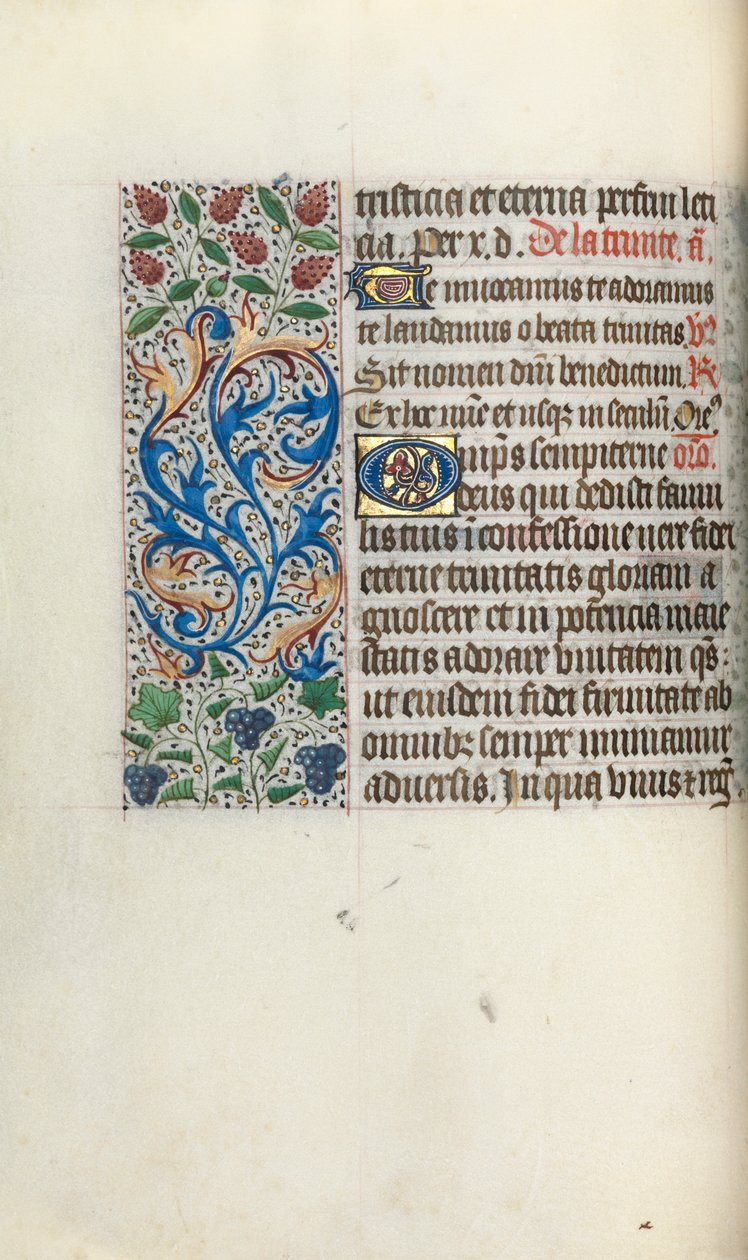 tristicia et eterna perfrui leti
cia. Per x. d. De la trinite. ā.
Te inuocamus te adoramus
te laudamus o beata trinitas. v̾
Sit nomen dn̄i benedictum. R
Ex hoc nūc et usqꝫ in seculū. Ore᷒
Omnip̄s sempiterne oro̅.
deus qui dedisti famu
lis tuis ī confessione uere fidei
eterne trinitatis gloriam a
gnoscere et in potēncia maie
statis adorare vnitatem q̄s:
ut eiusdem fidei firmitate ab
omnibꝫ semper muniamur
aduersis. In qua viuis ⁊ reg̅.